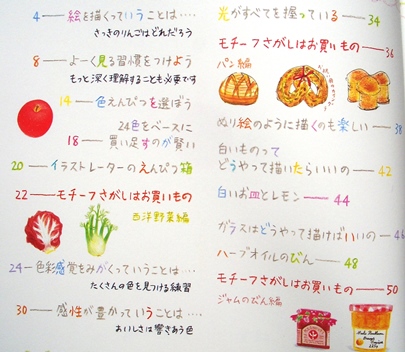 4 ― 絵を描くっていうことは‥‥
さっきのりんごはどれだろう
8 ― よーく見る習慣をつけよう
もっと深く理解することも必要です
14 ― 色えんぴつを選ぼう
24色をベースに
18 ― 買い足すのが賢い
20 ― イラストレーターのえんぴつ箱
22 ― モチーフさがしはお買いもの
西洋野菜編
24 ― 色彩感覚をみがくっていうことは‥‥
たくさんの色を見つける練習
30 ― 感性が豊かっていうことは‥‥
おいしさは響きあう色
光がすべてを握っている ― 34
モチーフさがしはお買いもの ― 36
パン編
ぬり絵のように描くのも楽しい ― 38
白いものって
どうやって描いたらいいの ― 42
白いお皿とレモン ― 44
ガラスはどうやって描けばいいの ― 46
ハーブオイルのびん ― 48
モチーフさがしはお買いもの ― 50
ジャムのびん編